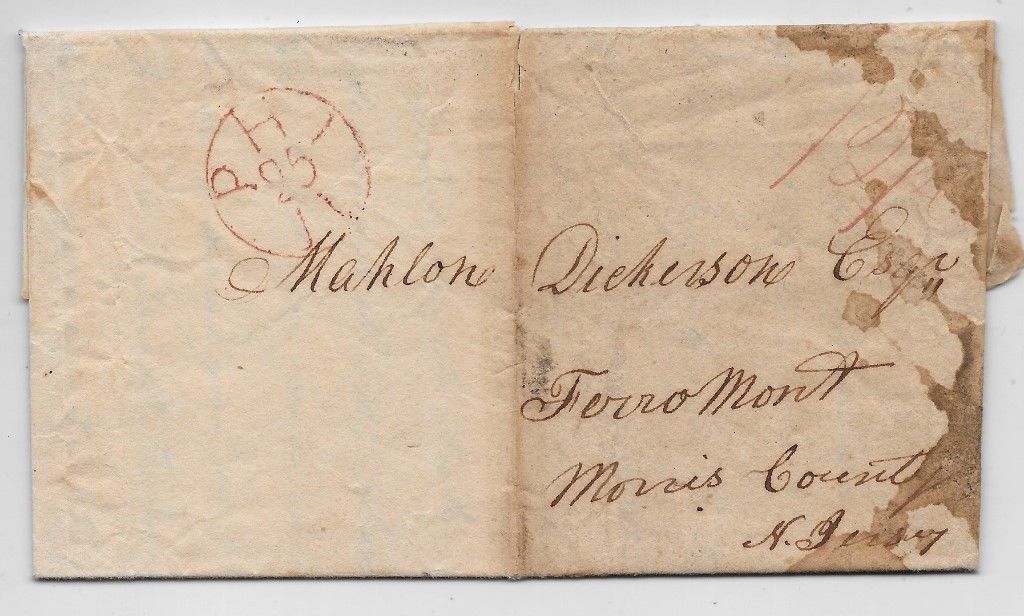 PHI
25
12½
Mahlon Dickerson Esqr
Ferro Mont
Morris County
N. Jersey